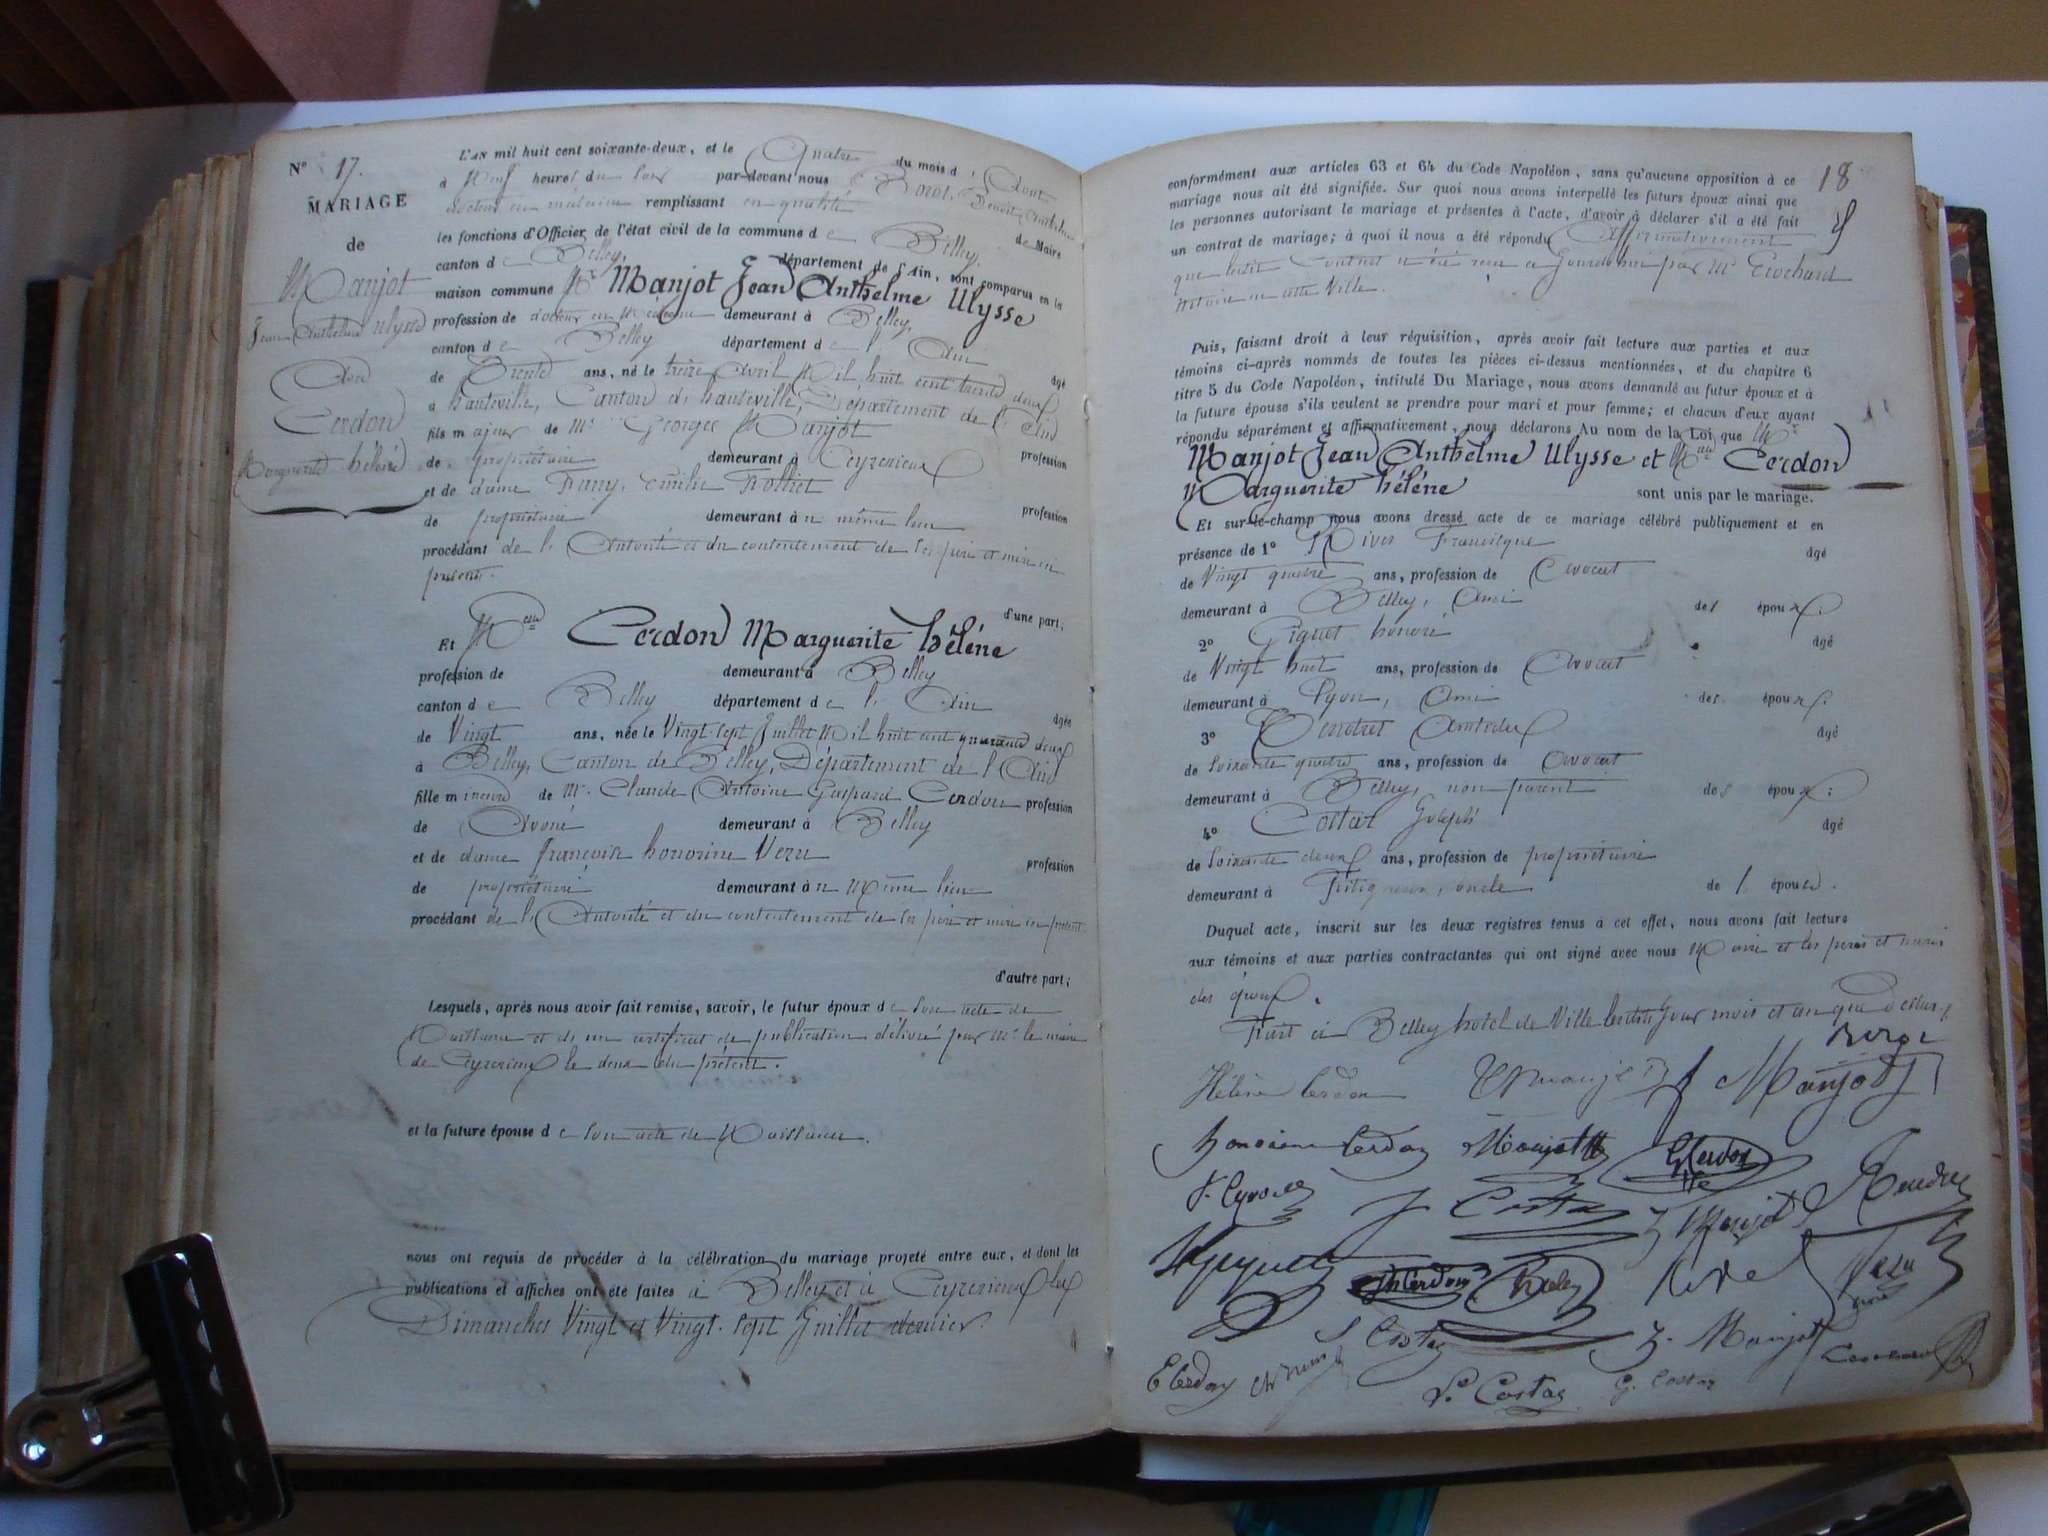 N° 17.
MARIAGE
de
Manjot
Jean Anthelme Ulysse
And
Cerdon
Marguerite hélène
L'AN mil huit cent soixante-deux, et le Quatre du mois d' Aout
à Neuf heures du soir par-devant nous
docteur en médecine remplissant en qualité de Maire
les fonctions d'Officier de l'état civil de la commune de Belley,
canton de Belley, département de l'Ain, sont comparus en la
maison commune Mr Manjot Jean Anthelme Ulysse
profession de docteur en Médecine demeurant à Belley,
canton de Belley département de l' Ain âgé
de Trente ans, né le treize Avril Mil huit cent trente deux
à hauteville, Canton de hauteville, Département de l' Ain
fils majeur de Mr Georges Manjot profession
de propriétaire demeurant à Ceyzerieux
et de dame Fany, émilie Trolliet profession
de propriétaire demeurant au même lieu
procédant de l' Autorité et du consentement de ses père et mère ici
présents.
d'une part;
Et Melle Cerdon Marguerite hélène
profession de demeurant à Belley
canton de Belley département de l' Ain âgée
de Vingt ans, née le Vingt-sept Juillet Mil huit cent quarante deux
à Belley, Canton de Belley, Département de l' Ain
fille mineure de Mr Claude Antoine Gaspard Cerdon profession
de Avoué demeurant à Belley
et de dame françoise honorine Veru profession
de propriétaire demeurant au Même lieu
procédant de l' Autorité et du consentement de ses père et mère ici présents
d'autre part;
Lesquels, après nous avoir fait remise, savoir, le futur époux de son acte de
Naissance et de un certificat de publication délivré par Mr le maire
de Ceyzerieux le deux du présent.
et la future épouse de son acte de Naissance.
nous ont requis de procéder à la célébration du mariage projeté entre eux, et dont les
publications et affiches ont été faites à Belley et à Ceyzerieux les
Dimanches Vingt et Vingt-sept Juillet dernier.
18
conformément aux articles 63 et 64 du Code Napoléon, sans qu'aucune opposition à ce
mariage nous ait été signifiée. Sur quoi nous avons interpellé les futurs époux ainsi que
les personnes autorisant le mariage et présentes à l'acte, d'avoir à déclarer s'il a été fait
un contrat de mariage; à quoi il nous a été répondu Affirmativement
que ledit Contrat a été reçu ce Jourd'hui par Me
Notaire en cette Ville.
Puis, faisant droit à leur réquisition, après avoir fait lecture aux parties et aux
témoins ci-après nommés de toutes les pièces ci-dessus mentionnées, et du chapitre 6
titre 5 du Code Napoléon, intitulé Du Mariage, nous avons demandé au futur époux et à
la future épouse s'ils veulent se prendre pour mari et pour femme; et chacun d'eux ayant
répondu séparément et affirmativement, nous déclarons Au nom de la Loi que Mr
Manjot Jean Anthelme Ulysse et Melle Cerdon
Marguerite hélène sont unis par le mariage.
Et sur-le-champ nous avons dressé acte de ce mariage célébré publiquement et en
présence de 1° Francisque âgé
de Vingt quatre ans, profession de Avocat
demeurant à Belley, Ami des époux.
2° Piguet honoré âgé
de Vingt huit ans, profession de Avocat
demeurant à Lyon, Ami des époux.
3° Amédée âgé
de soixante quatre ans, profession de Avocat
demeurant à Belley, non parent des époux:
4° Costaz Joseph âgé
de soixante deux ans, profession de propriétaire
demeurant à oncle de l' épouse.
Duquel acte, inscrit sur les deux registres tenus à cet effet, nous avons fait lecture
aux témoins et aux parties contractantes qui ont signé avec nous Maire et les pères et mères
des époux.
Fait à Belley hôtel de Ville lesdits Jour mois et an que dessus.
Hélène Cerdon Manjot
honorine Cerdon Manjot Cerdon
Costaz Manjot
Cerdon Veru
Costaz Z. Manjot
E Cerdon Costaz G. Costaz